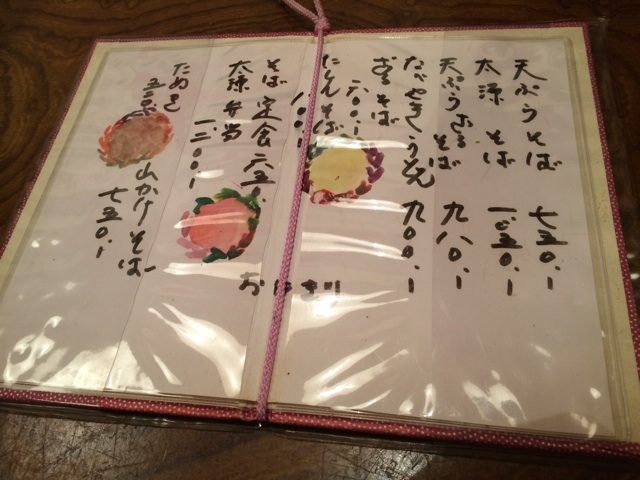 天ぷらそば 七五〇.ー
太源そば 一、〇五〇.ー
天ぷらざるそば 九八〇.ー
なべやきうどん 九〇〇.ー
ざるそば 六〇〇.ー
にしんそば 八〇〇.ー
そば定食 六五〇.
太源弁当 一二〇〇ー
たぬき 五五〇ー
山かけそば 七五〇.ー
おにぎり